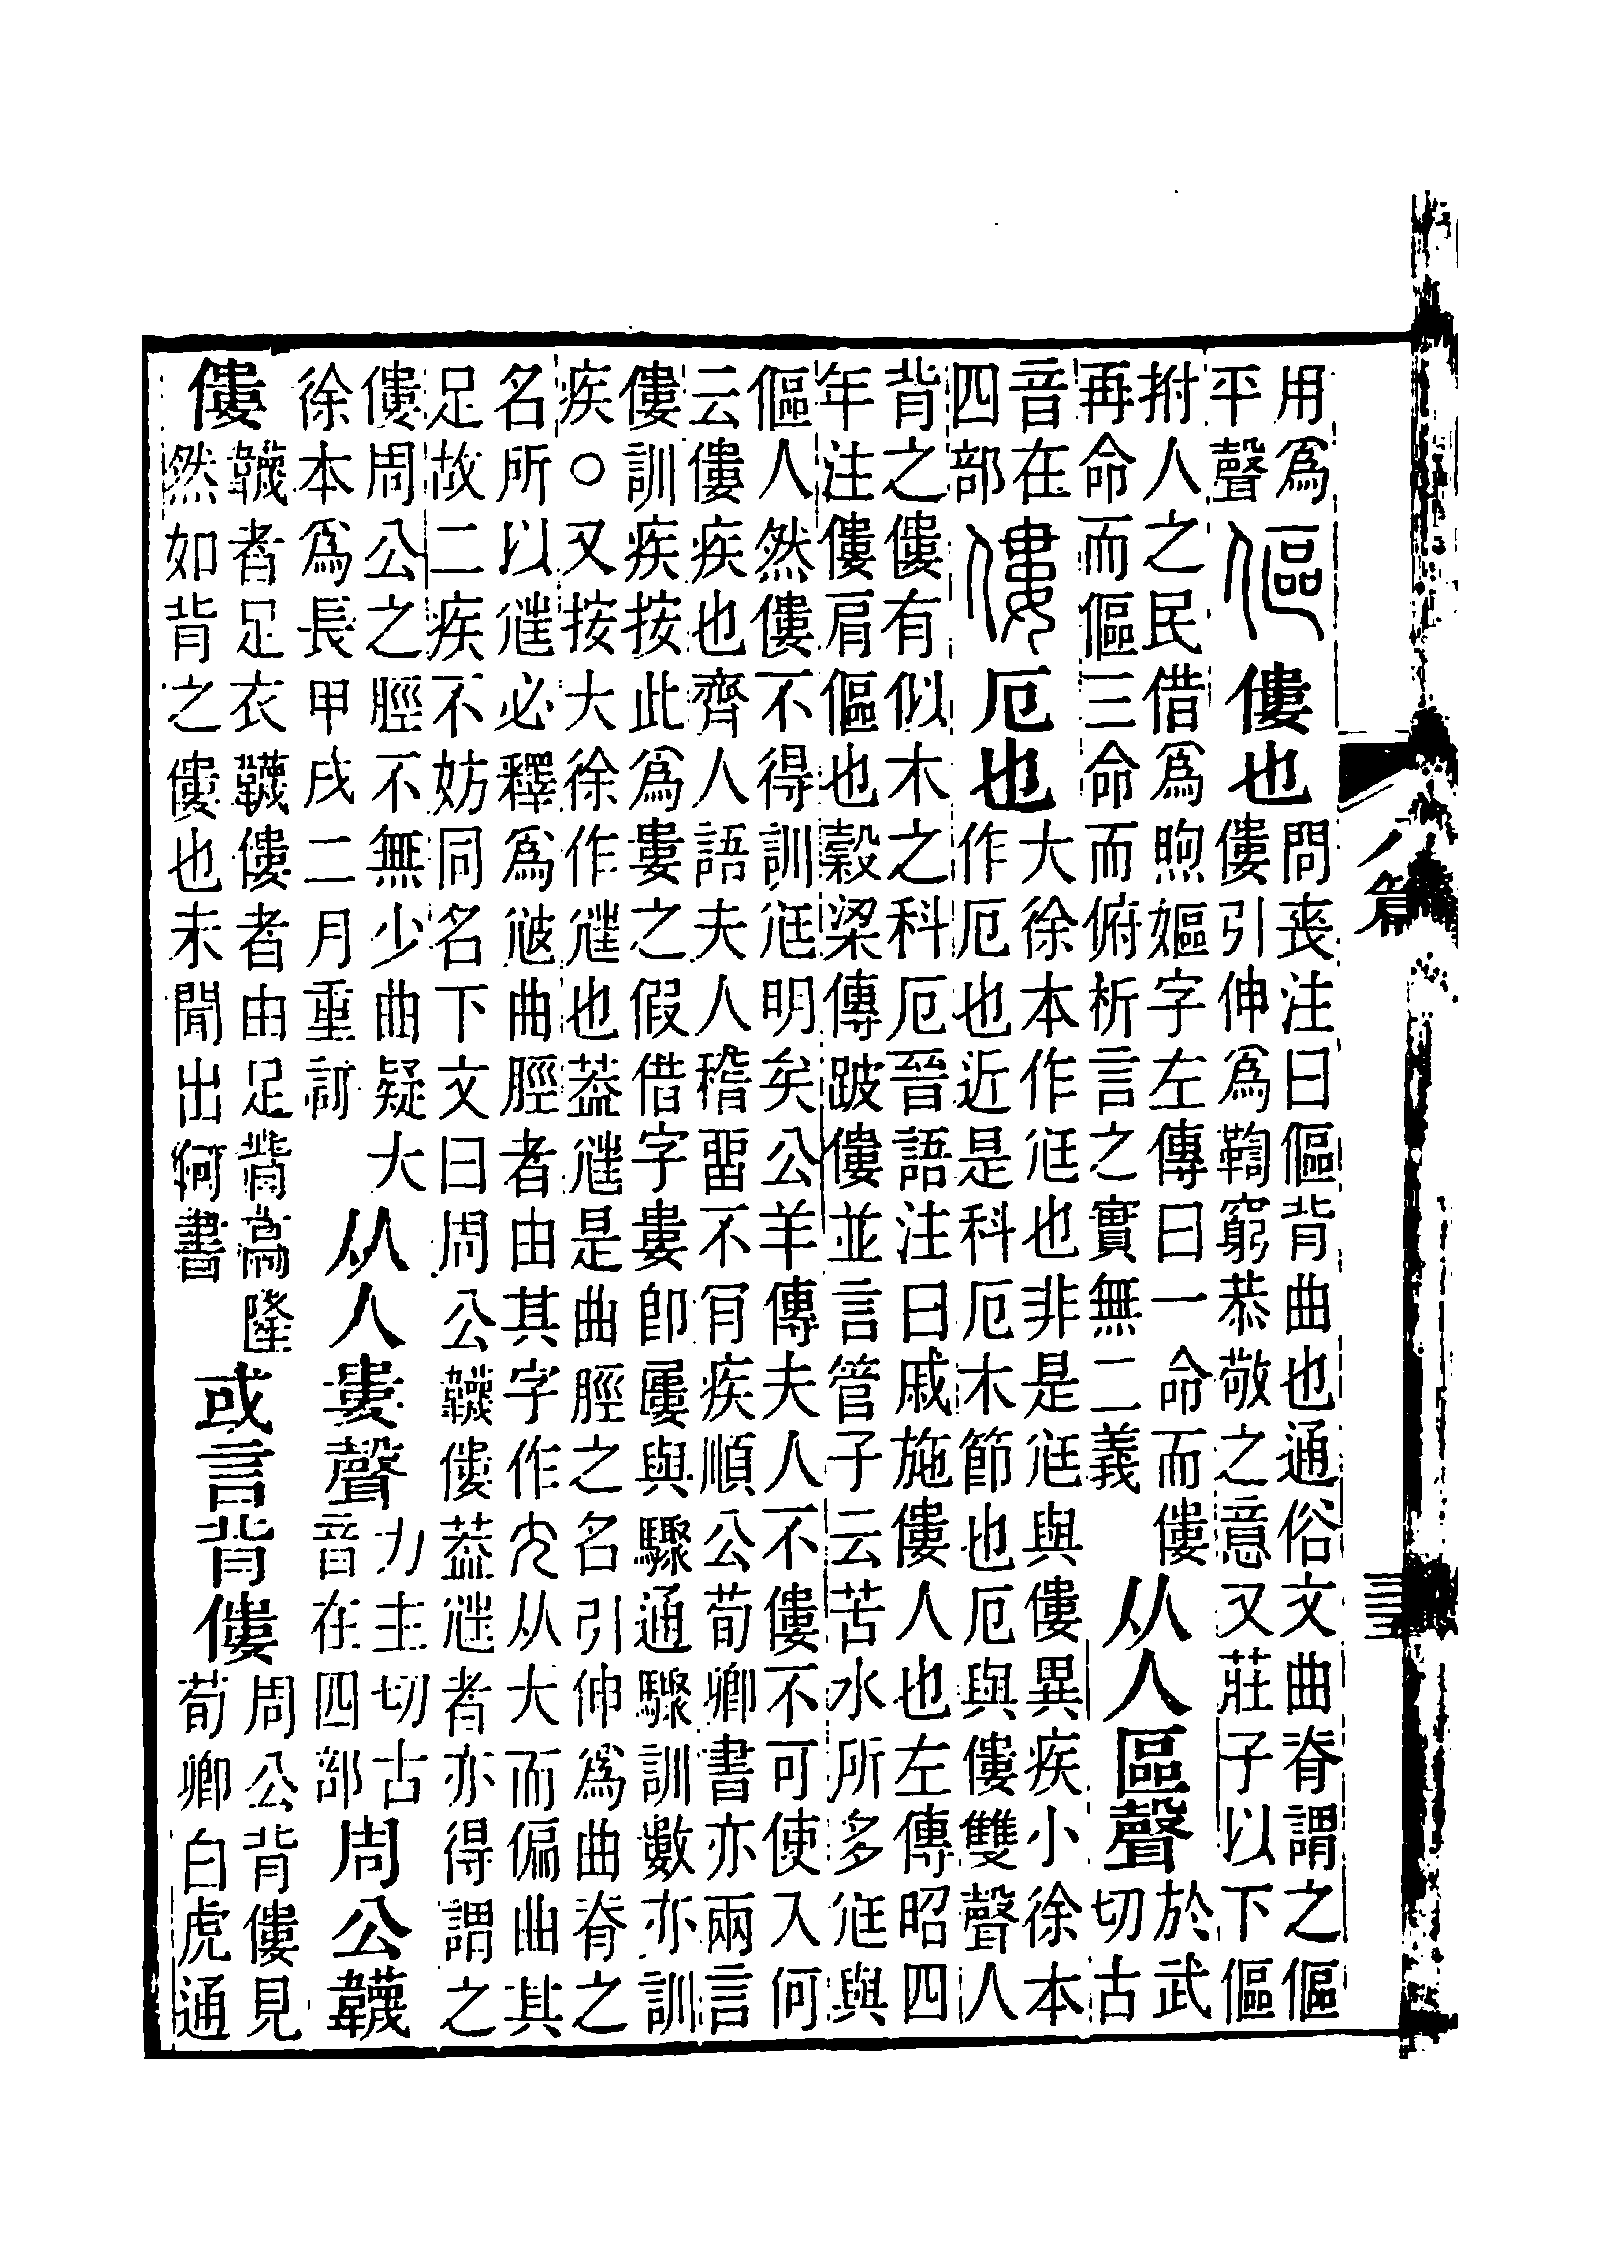 用爲平聲 傴 僂也 問喪注曰傴背曲也通俗文曲脊謂之傴
僂引伸爲鞫窮恭敬之意又莊子以下傴
拊人之民借爲煦嫗字左傳曰一命而僂
再命而傴三命而俯析言之實無二義 从人區聲 於武切古
音在四部 僂 厄也 大徐本作尫也非是尫與僂異疾小徐本
作厄也近是科厄木節也厄與僂雙聲人
背之僂有似木之科厄晉語注曰戚施僂人也左傳昭四
年注僂肩傴也穀梁傳跛僂並言管子云苦水所多尫與
傴人然僂不得訓尫明矣公羊傳夫人不僂不可使入何
云僂疾也齊人語夫人稽畱不肎疾順公荀卿書亦兩言
僂訓疾按此爲婁之假借字婁卽屢與驟通驟訓數亦訓
疾○又按大徐作尫也葢尫是曲脛之名引伸爲曲脊之
名所以尫必釋爲𡯋曲脛者由其字作尣从大而偏曲其
足故二疾不妨同名下文曰周公韤僂葢尫者亦得謂之
僂周公之脛不無少曲疑大
徐本爲長甲戌二月重訂 从人婁聲 力主切古音在四部 周公韤
僂 韤者足衣韤僂者由足背高隆
然如背之僂也未聞出何書 或言背僂 周公背僂見荀卿白虎通
八篇